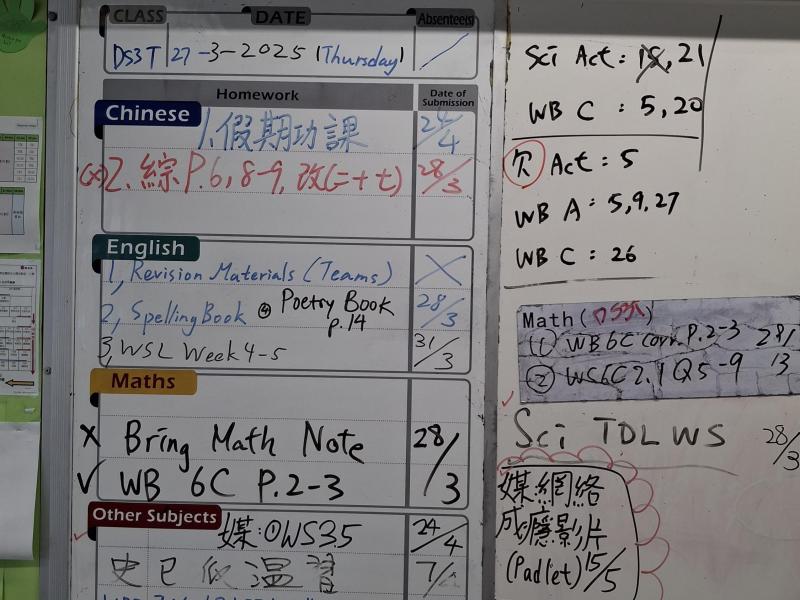 CLASS DATE Absentee(s)
DS3T 27-3-2025 (Thursday) /
Homework Date of Submission
Chinese
1. 假期功課 24/4
(x) 2. 綜 P.6, 8-9, 改(二+七) 28/3
English
1, Revision Materials (Teams) X
2, Spelling Book ④ Poetry Book p.14 28/3
3, WSL Week 4-5 31/3
Maths
X Bring Math Note 28/3
✓ WB 6C P.2-3
Other Subjects
媒:①WS35 24/4
溫習 7/
Sci Act: 18, 21
WB C : 5, 20
欠 Act : 5
WB A : 5, 9, 27
WB C : 26
Math ( )
① WB 6C corr. P.2-3 28/
② WS6C2.1 Q5-9 /3
Sci TDLWS 28/3
媒網絡
成癮影片
(Padlet) 15/5